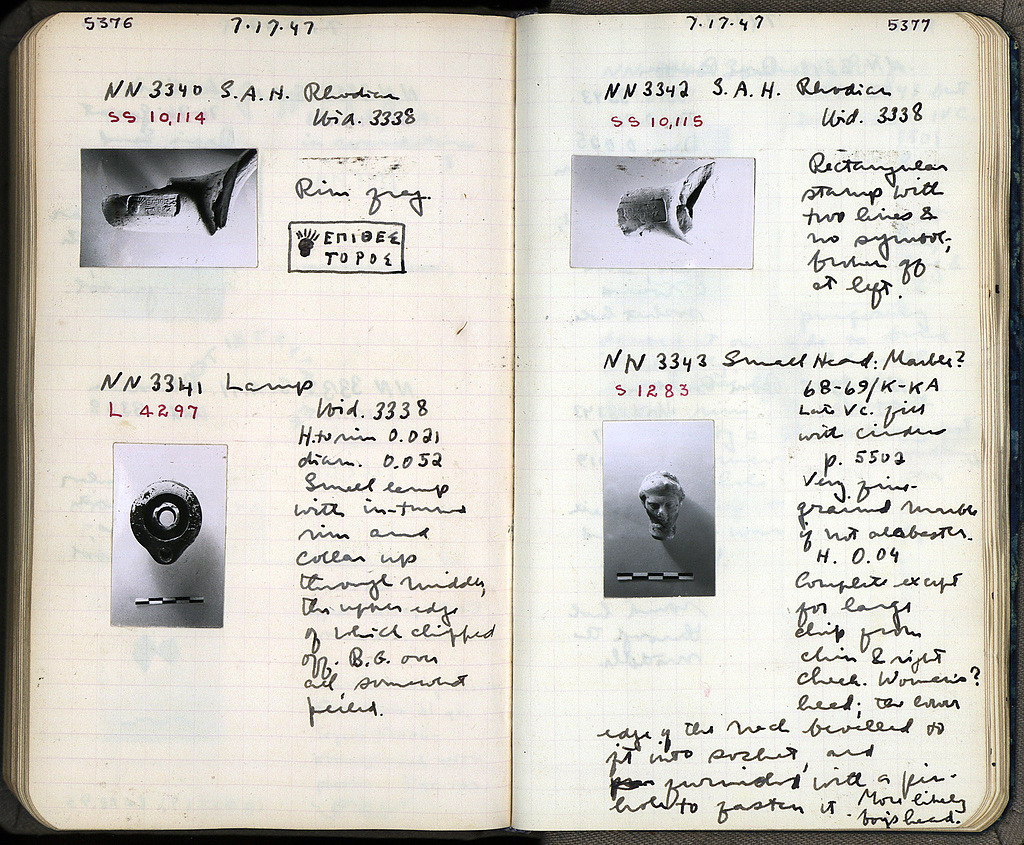 5376
7·17·47
NN 3340 S.A.H. Rhodian
SS 10,114
Ibid. 3338
Rim frag.
ΕΠΙΘΕΣ
ΤΟΡΟΣ
NN 3341 Lamp
L 4297
Ibid. 3338
H. to rim 0.021
diam. 0.052
Small lamp
with in-turned
rim and
collar up
through middle,
the upper edge
of which chipped
off. B.G. over
all, somewhat
peeled.
7·17·47
5377
NN 3342 S.A.H. Rhodian
SS 10,115
Ibid. 3338
Rectangular
stamp with
two lines &
no symbol;
broken off
at left.
NN 3343 Small Head: Marble?
S 1283
68-69/K-KA
Late V c. fill
with cinders
p. 5502
Very fine-
grained marble
if not alabaster.
H. 0.04
Complete except
for large
chip from
chin & right
cheek. Woman's?
head; the lower
edge of the neck bevelled to
fit into socket, and
furnished with a pin-
hole to fasten it. More likely
boy's head.